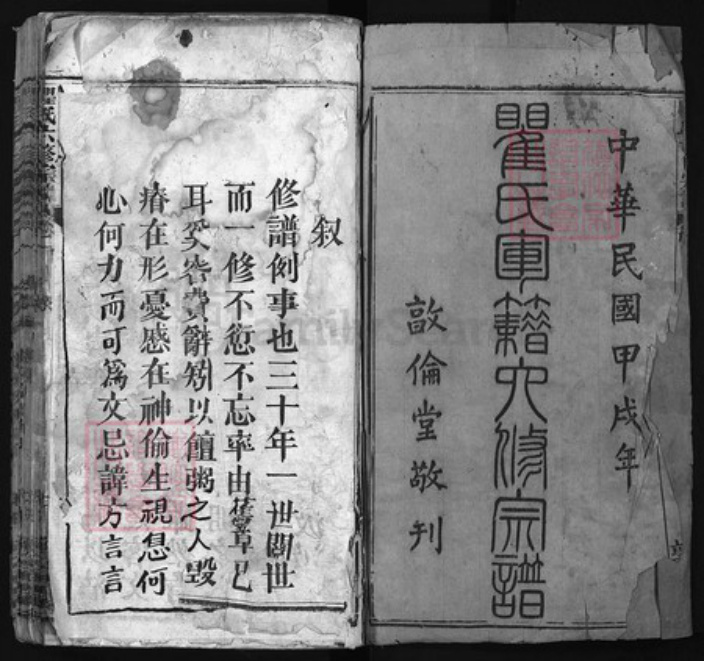 中華民國甲戌年
瞿氏軍籍六修宗譜
敦倫堂敬刊
叙
修譜例事也三十年一世閱世
而一修不愆不忘率由舊章已
耳奚容費辭矧以饘粥之人毀
瘠在形憂慼在神偷生視息何
心何力而可爲文忌諱方言言